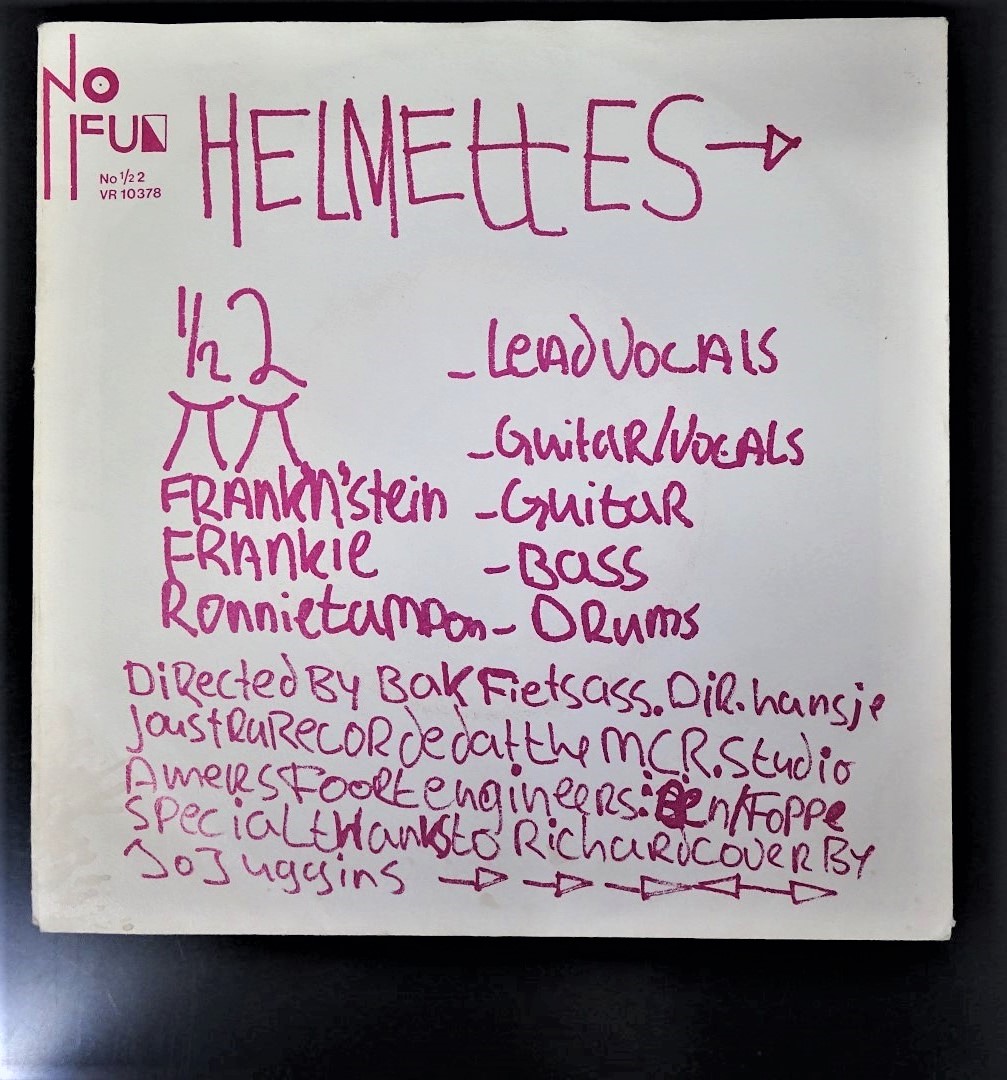 No
FUN
No 1/2 2
VR 10378
HELMETTES
1/2 2 - Lead Vocals
- Guitar/Vocals
FRAnkn'stein - Guitar
FRAnkie - Bass
Ronnietampon - DRums
DiRected By Bak Fietsass. DiR. hansje
JoustRa RecoRded at the M.C.R. Studio
AmeRsFooRt engineeRs: Ben/Foppe
special thanks to RichaRd coveR By
JoJuggins